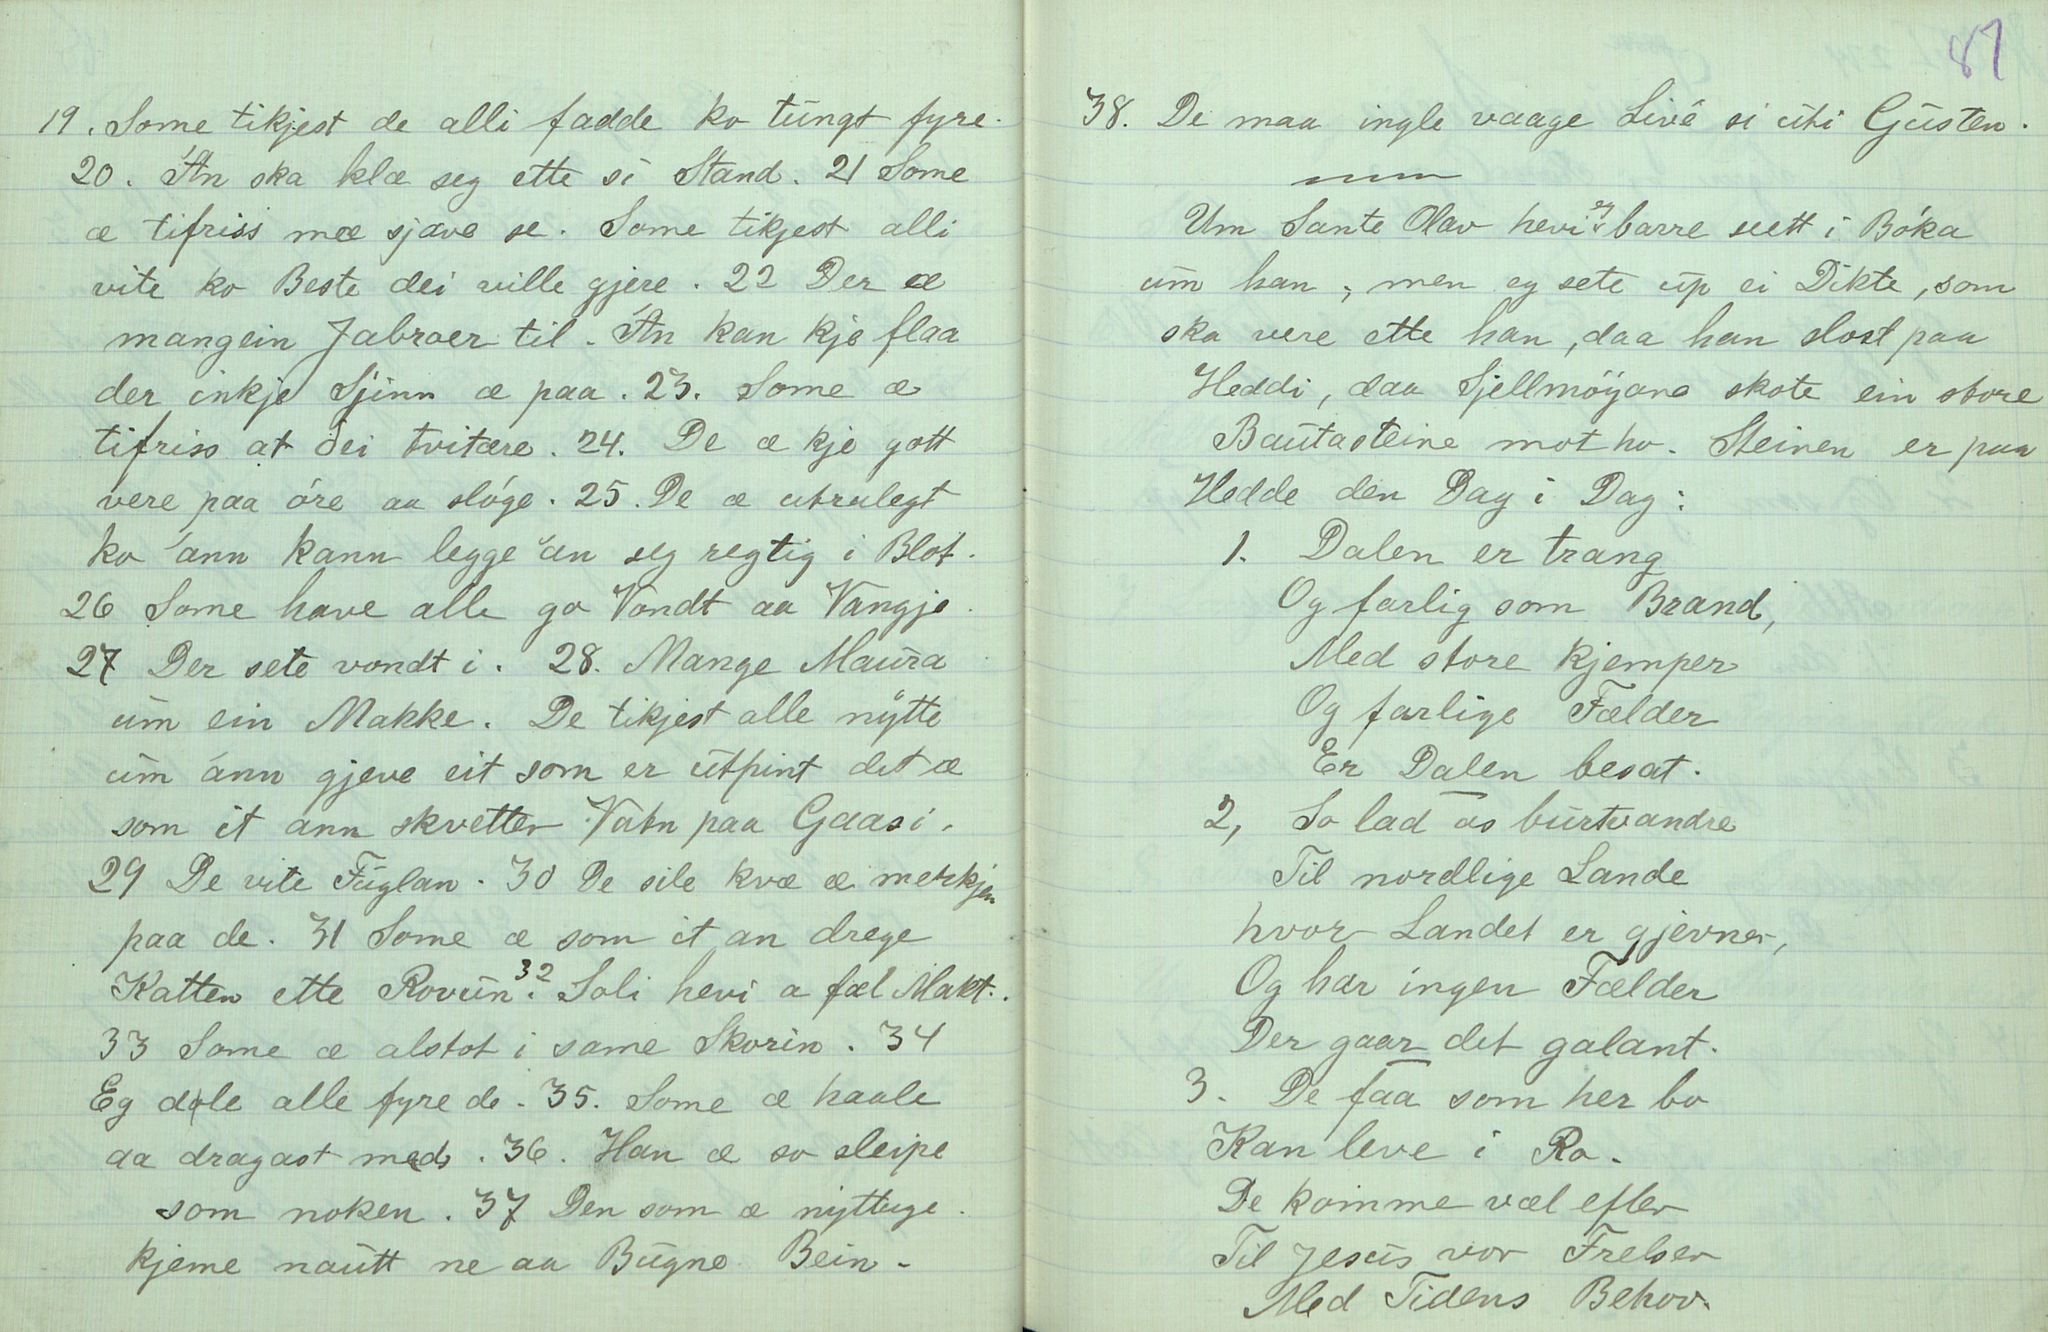 19. Some tikjest de alli fadde ko tungt fyre.
20. Án ska klæ seg ette si Stand. 21 Some
æ tifriss mæ sjave se. Some tikjest alli
vite ko Beste dei ville gjere. 22 Der æ
mangein Jabroer til. Án kan kje flaa
der inkje Sjinn æ paa. 23. Some æ
tifriss at dei tvitære. 24. De æ kje gott
vere paa óre aa slóge. 25. De æ utrulegt
ko ánn kann legge án seg regtig i Blot.
26 Some have alle go Vondt aa Vangje.
27 Der sete vondt i. 28. Mange Maura
um ein Makke. De tikjest alle nytte
um ánn gjeve eit som er utpint det æ
som it ánn skvetter Vatn paa Gaasi.
29 De vite Fuglan. 30 De sile kvæ æ merkjen
paa de. 31 Some æ som it an drege
Katten ette Rovun. 32 Soli hevi a fæl Makt.
33 Some æ alstot i same Skorin. 34
Eg dole alle fyre de. 35. Some æ haale
aa dragast meds. 36. Han æ so sleipe
som noken. 37 Den som æ nyttuge
kjeme nautt ne aa Bugne Bein.
87
38. De maa ingle vaage Live si uti Gusten.
Um Sante Olav hevi eg barre sett i Bóka
um han; men eg sete up ei Dikte, som
ska vere ette han, daa han slost paa
Heddi, daa Sjellmøyane skote ein store
Bautasteine mot ho. Steinen er paa
Hedde den Dag i Dag:
1. Dalen er trang
Og farlig som Brand,
Med store Kjemper
Og farlige Fælder
Er Dalen besat.
2, So lad os burtvandre
Til nordlige Lande
hvor Landet er gjevner,
Og har ingen Fælder
Der gaar det galant.
3. De faa som her bo
Kan leve i Ro.
De komme væl efter
Til Jesus vor Frelser
Med Tidens Behov.